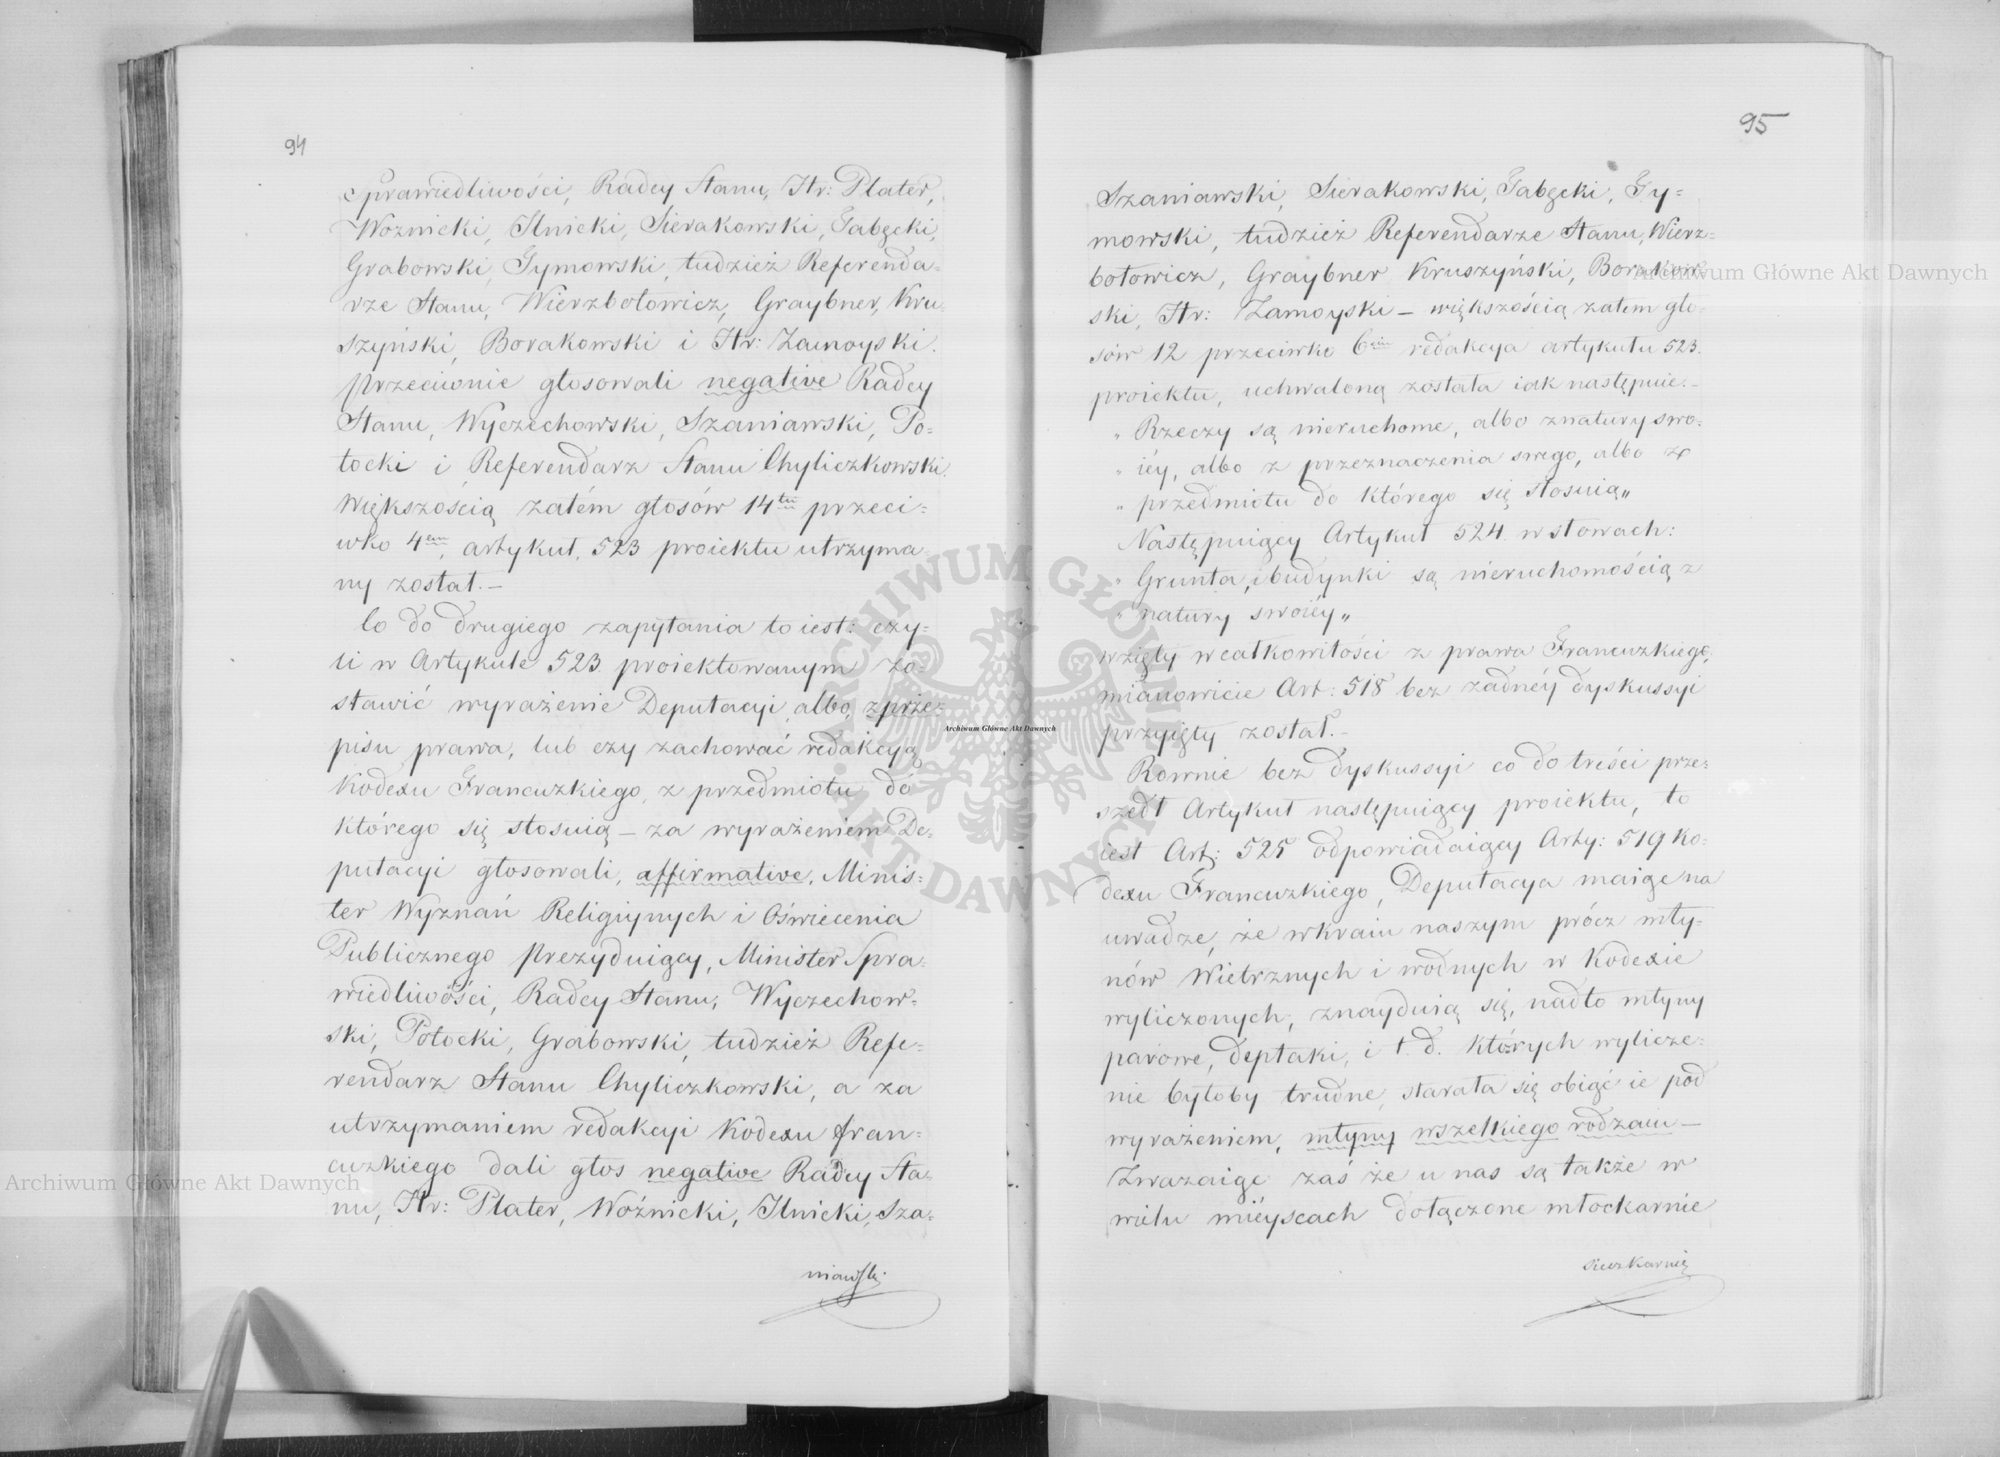 94
Sprawiedliwości, Radcy Stanu, Hr: Plater,
Woznicki, Ilnicki, Sierakowski, Gabęcki,
Grabowski, Tymowski, tudzież Referenda=
rze Stanu, Wierzbołowicz, Graybner, Kru=
szyński, Borakowski i Hr: Zamoyski.
przeciwnie głosowali negative Radcy
Stanu, Wyczechowski, Szaniawski, Po=
tocki i Referendarz Stanu Chyliczkowski.
Większością zatém głosów 14tu przeci=
wko 4em, artykuł 523 proiektu utrzyma=
ny został.—
Co do drugiego zapytania to iest: czy=
li w Artykule 523 proiektowanym zo=
stawić wyrażenie Deputacyi albo z prze=
pisu prawa, lub czy zachować redakcyą
Kodexu Francuzkiego, z przedmiotu do
którego się stosuią — za wyrażeniem De=
putacyi głosowali, affirmative, Minis=
ter Wyznań Religiynych i Oświecenia
Publicznego Prezyduiący, Minister Spra=
wiedliwości, Radcy Stanu, Wyczechow=
ski, Potocki, Grabowski, tudzież Refe=
rendarz Stanu Chyliczkowski, a za
utrzymaniem redakcyi Kodexu fran=
cuzkiego dali głos negative Radcy Sta=
nu, Hr: Plater, Woźnicki, Ilnicki, Sza=
niawski
95
Szaniawski, Sierakowski, Gabęcki, Ty=
mowski, tudzież Referendarze Stanu, Wierz=
bołowicz, Graybner, Kruszyński, Borakow=
ski, Hr: Zamoyski — większością zatem gło=
sów 12 przeciwko 6ciu redakcya artykułu 523.
proiektu, uchwaloną została iak następuie.—
„ Rzeczy są nieruchome, albo z natury swo=
„ iéy, albo z przeznaczenia swego, albo z
„ przedmiotu do którego się stosuią„
Następuiący Artykuł 524 w słowach:
„ Grunta, i budynki są nieruchomością z
„ natury swoiéy„
wzięty w całkowitości z prawa Francuzkiego,
mianowicie Art: 518 bez żadnéy dyskussyi
przyięty został.—
Rownie bez dyskussyi co do treści prze=
szedł Artykuł następuiący proiektu, to
iest Art: 525 odpowiadaiący Arty: 519 Ko=
dexu Francuzkiego, Deputacya maiąc na
uwadze, że w kraiu naszym prócz mły=
nów Wietrznych i wodnych w Kodexie
wyliczonych, znayduią się, nadto młyny
parowe, deptaki, i t. d. których wylicze=
nie byłoby trudne, starała się obiąć ie pod
wyrażeniem, młyny wszelkiego rodzaiu —
Zważaiąc zaś że u nas są także w
wielu mieyscach dołączone młockarnie
sieczkarnie
Archiwum Główne Akt Dawnych
Archiwum Główne Akt Dawnych
Archiwum Główne Akt Dawnych
ARCHIWUM GŁÓWNE AKT DAWNYCH